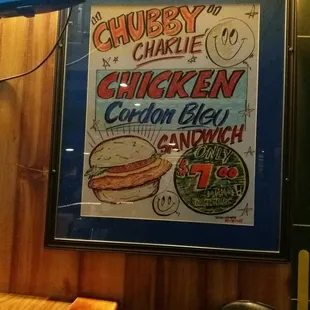 "CHUBBY"
CHARLIE
CHICKEN
Cordon Bleu
SANDWICH
ONLY
$7.00